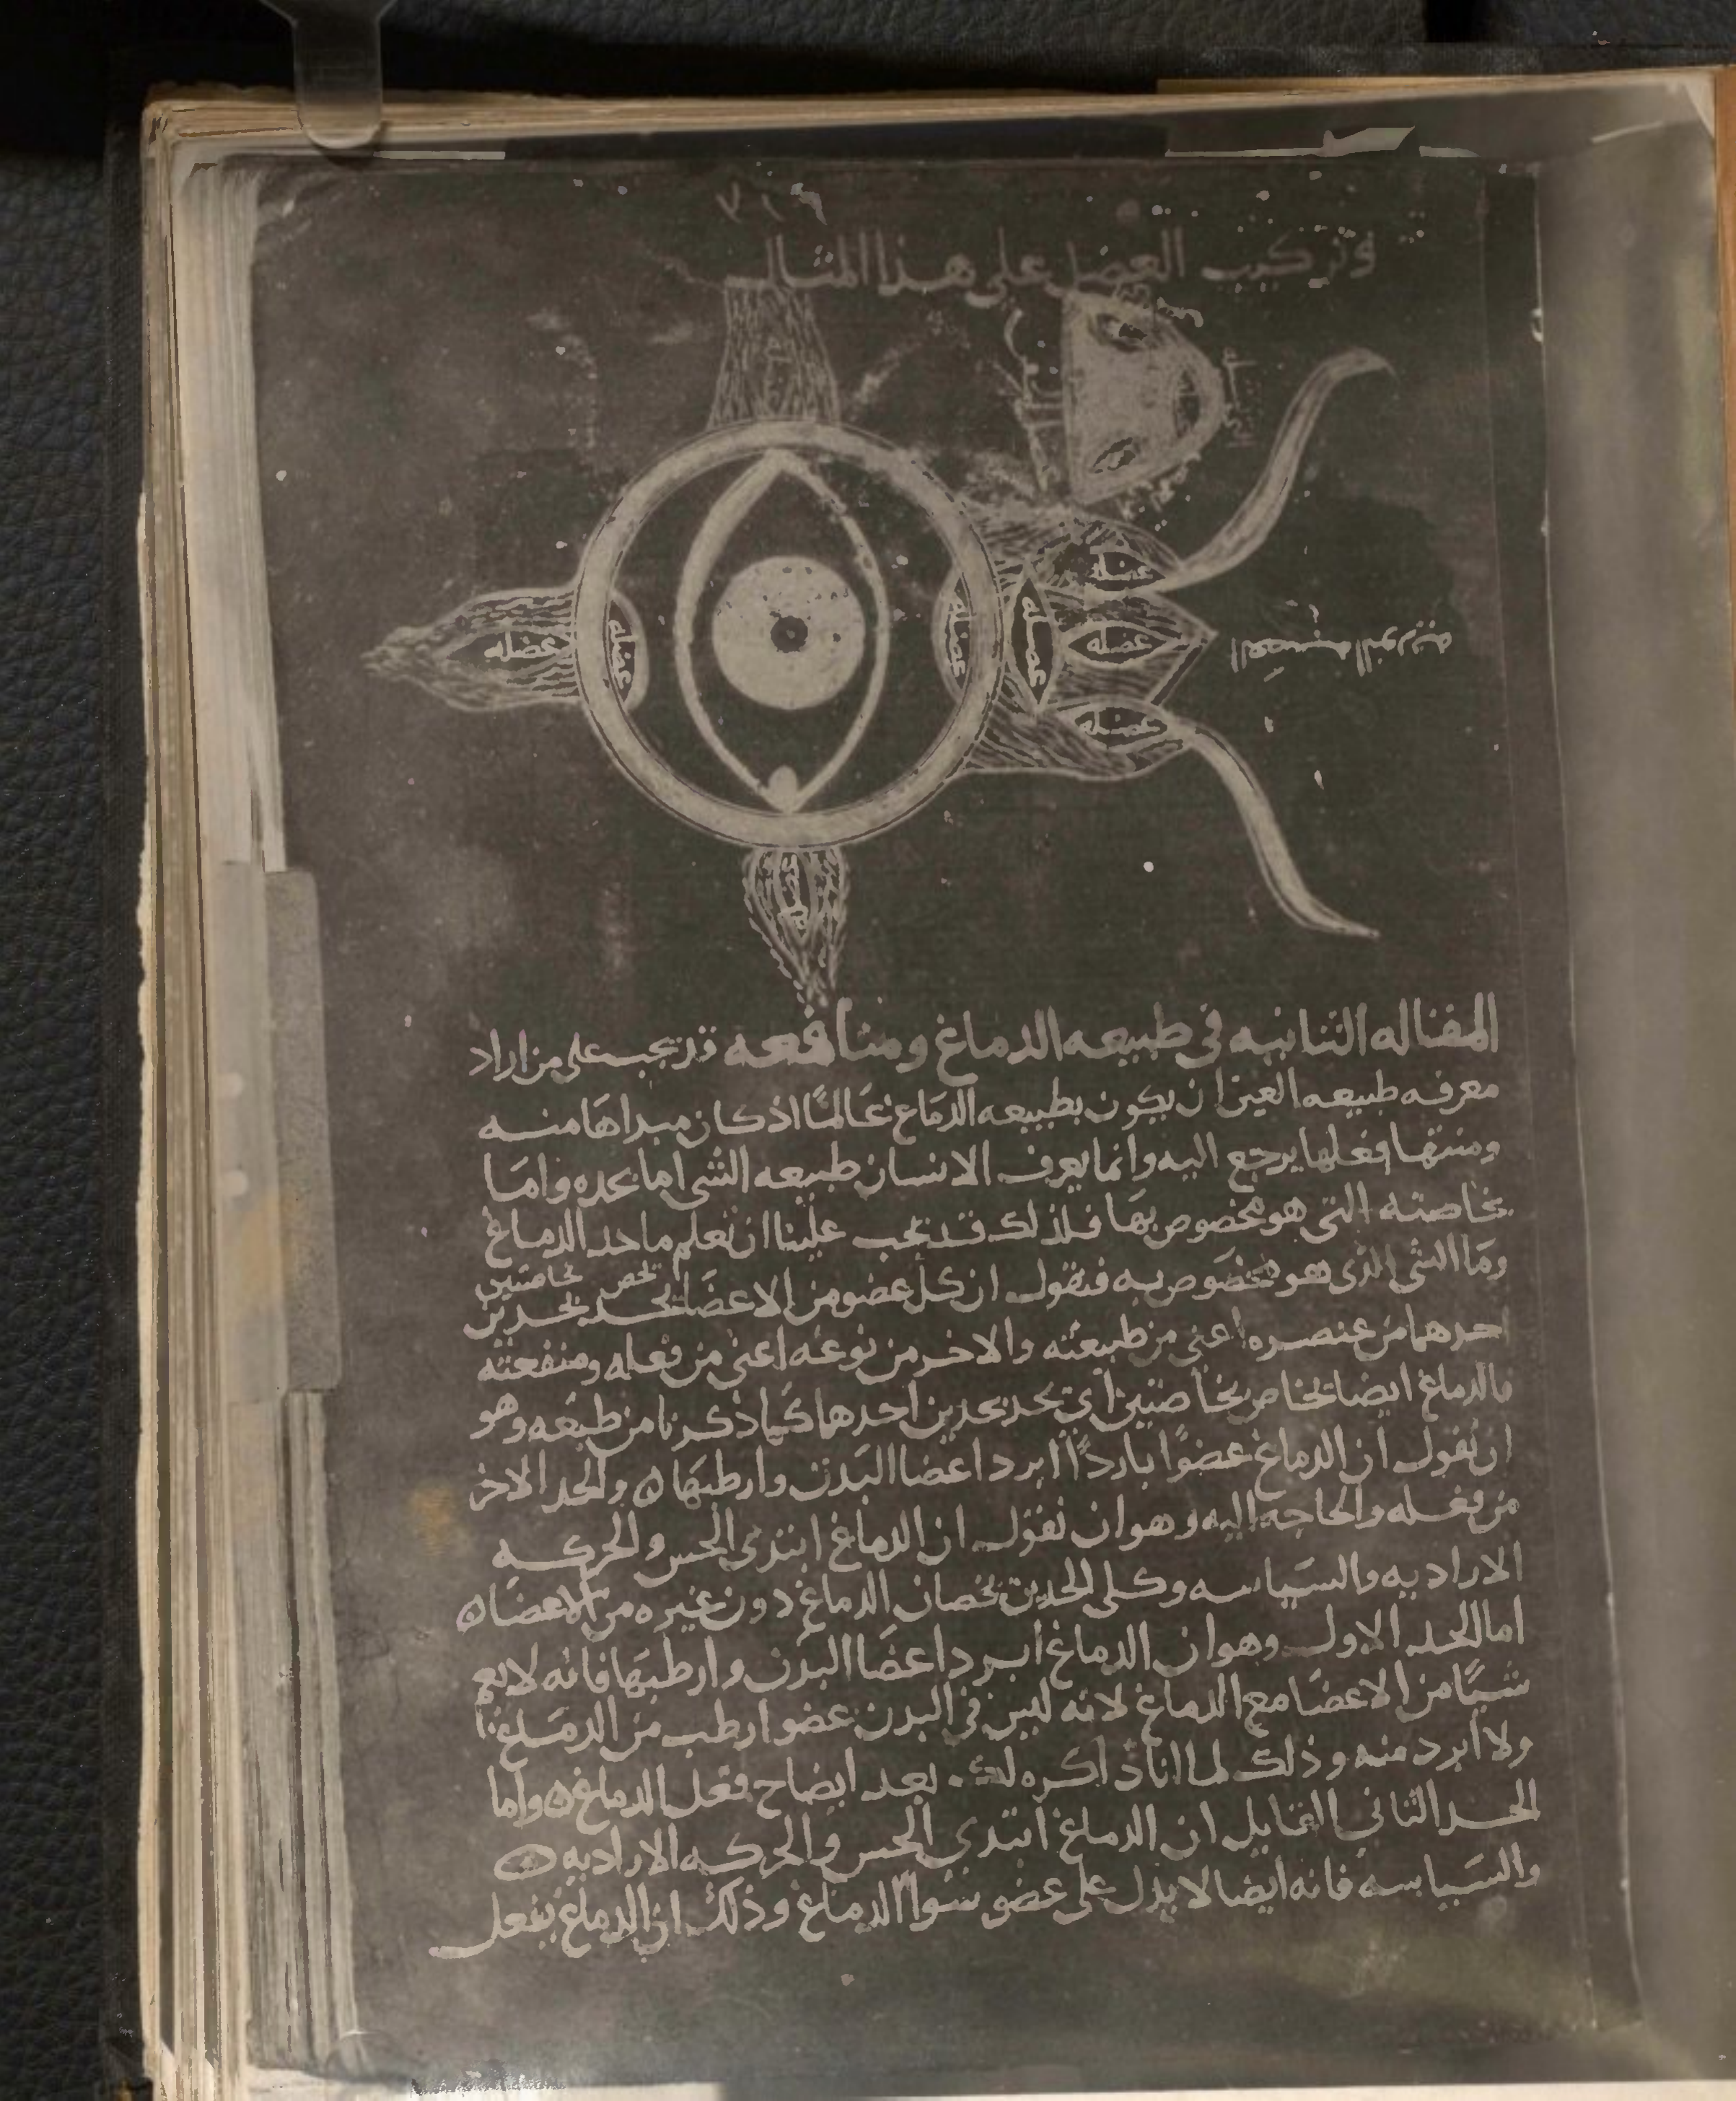 وتركيب العضل على هذا المثال
عضله
عضله
عضله
عضله
عضله
عضله
عضله
العصبه النوريه
المقاله الثانيه في طبيعه الدماغ ومنافعه قد يجب على من اراد
معرفه طبيعه العين ان يكون بطبيعه الدماغ عالمًا اذ كان مبداها منه
ومنتها فعلها يرجع اليه وانما يعرف الانسان طبيعه الشي اما بحده واما
بخاصته التي هو مخصوص بها فلذلك قد يجب علينا ان نعلم ما حد الدماغ
وما الشي الذي هو مخصوص به فنقول ان كل عضو من الاعضا يحد بحدين
يخص بخاصتين
احدهما من عنصره اعني من طبيعته والاخر من نوعه اعني من فعله ومنفعته
فالدماغ ايضا يخاص بخاصتين اي يحد بحدين احدهما كما ذكرنا من طبعه وهو
ان نقول ان الدماغ عضوًا باردًا ابرد اعضا البدن وارطبها ۞ والحد الاخر
من فعله والحاجه اليه وهو ان نقول ان الدماغ ابتدى الحس والحركه
الاراديه والسياسه وكلى الحدين يخصان الدماغ دون غيره من الاعضا ۞
اما الحد الاول وهو ان الدماغ ابرد اعضا البدن وارطبها فانه لا يعم
شيًا من الاعضا مع الدماغ لانه ليس في البدن عضو ارطب من الدماغ
ولا ابرد منه وذلك لما انا ذاكره لك بعد ايضاح فعل الدماغ ۞ واما
الحد الثاني القايل ان الدماغ ابتدى الحس والحركه الاراديه ۞
والسياسه فانه ايضا لا يدل على عضو سوا الدماغ وذلك ان الدماغ يفعل